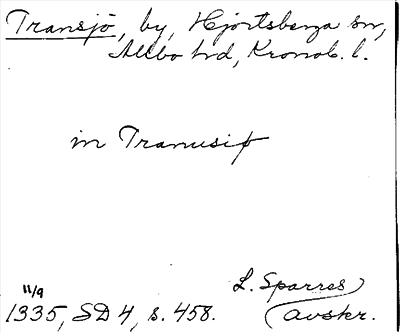 Transjö, by, Hjortsberga sn,
Allbo hd, Kronob. l.
in Tranusiþ
11/9
1335, SD 4, s. 458.
L. Sparres
avskr.